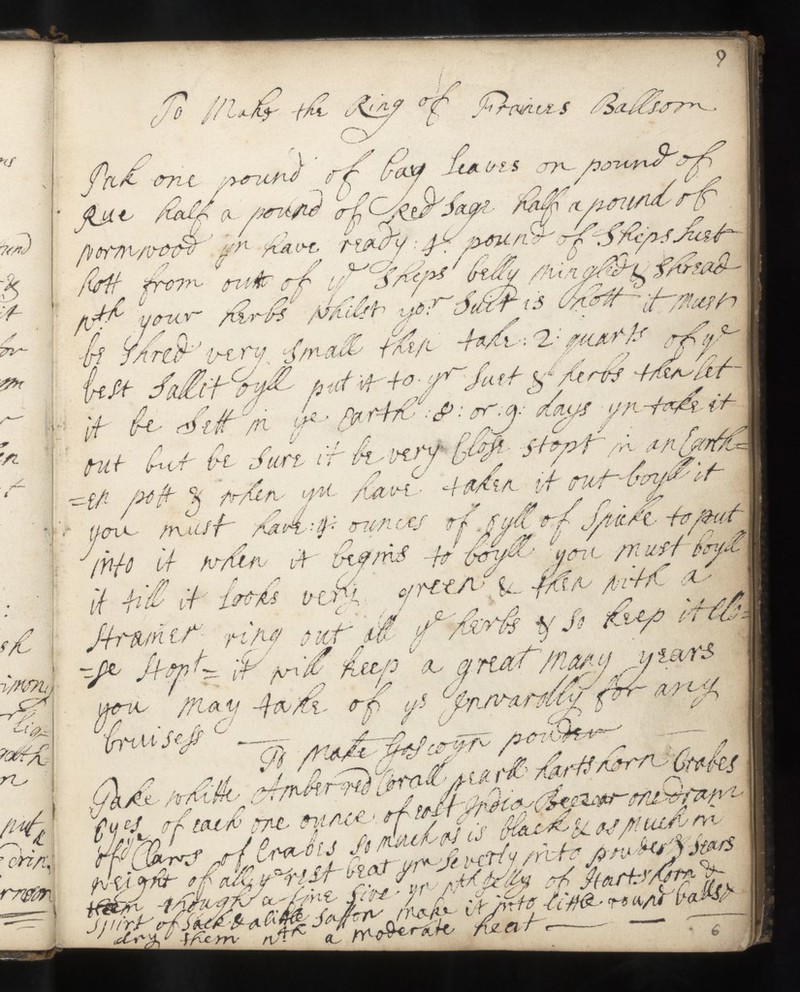 9
To Make the King of Frances Ballsom
Tak one pound of bay leaves on pound of
Rue half a pound of Red Sage half a pound of
wormwood yn have ready :4: pound of Sheps suet
hott from outt of ye Sheps belly mingled & Shread
wth your herbs whilst yor Suet is hott it must
be Shred very small then take :2: quarts of ye
best Sallit oyll put it to yr suet & herbs then let
it be Sett in ye Earth :8: or :9: days yn take it
out but be sure it be very Close stopt in an Earth=
=en pott & when yu have taken it out boyll it
you must have :4: ounces of oyll of Spicke to put
into it when it begins to boyll you must boyll
it till it looks very green & then with a
strainer ring out all ye herbs & so keep it clo=
=se stopt = it will keep a great many years
you may take of ys Inwardly for any
bruisess
To Make Gascoyn pouder
Take whitte Amber red Corall pearll hartshorn Crabes
Eyes of each one ounce of east India Beezar one dram
of ye Claws of Crabes so much as is black & as much in
weight of all ye rest beat ym severly into pouder & sears
them through a fine sive yn wth jelly of Hartshorn &
spirt of Sack & a little saffon make it into little round balls &
dry them wth a moderate heat
6
ound
&
it
for
r
en
:
sh
imony
lig=
n
put